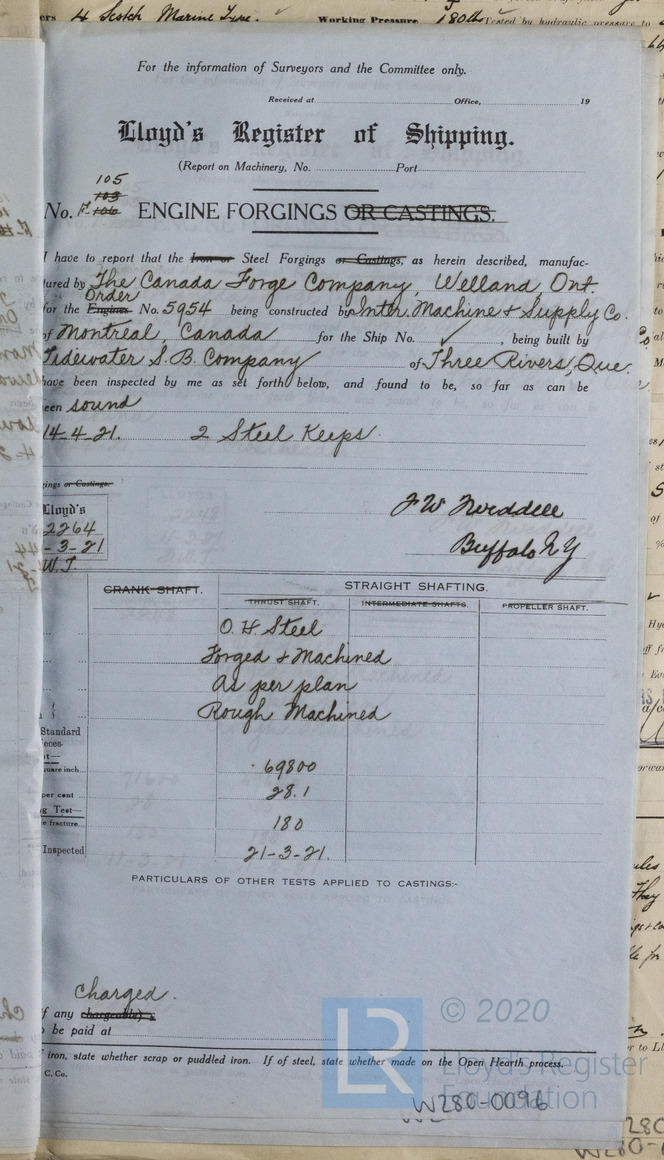 ers 4 Scotch Marine Type. Working Pressure 180 lbs Tested by hydraulic pressure to
For the information of Surveyors and the Committee only.
Received at Office, 19
Lloyd's Register of Shipping.
(Report on Machinery, No. Port
105
103
No. 106 ENGINE FORGINGS OR CASTINGS.
I have to report that the Iron or Steel Forgings or Castings, as herein described, manufac-
tured by The Canada Forge Company, Welland Ont.
Order
for the Engines No. 5954 being constructed by Inter. Machine & Supply Co.
of Montreal, Canada for the Ship No. ✓, being built by
Tidewater S. B. Company of Three Rivers, Que.
have been inspected by me as set forth below, and found to be, so far as can be
een sound
14-4-21. 2 Steel Keeps.
gings or Castings.
Lloyd's
2264
-3-21
W.T.
Buffalo NY
CRANK SHAFT. STRAIGHT SHAFTING.
THRUST SHAFT. INTERMEDIATE SHAFTS. PROPELLER SHAFT.
O. H. Steel
Forged & Machined
As per plan
Rough Machined
Standard
eces-
t—
quare inch 69800
per cent 28.1
g Test—
e fracture. 180
Inspected 21-3-21.
PARTICULARS OF OTHER TESTS APPLIED TO CASTINGS:-
Charged.
f any chargeable) s
be paid at
iron, state whether scrap or puddled iron. If of steel, state whether made on the Open Hearth process.
C. Co.
LR © 2020
Lloyd's Register
Foundation
W280-0096